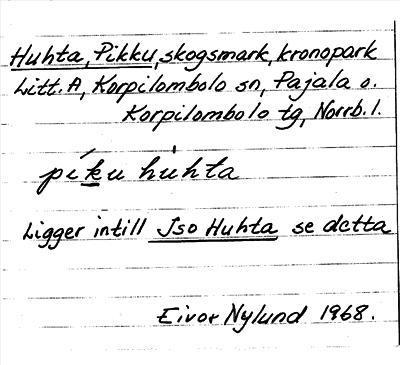 Huhta, Pikku, skogsmark, kronopark
Litt. A, Korpilombolo sn, Pajala o.
Korpilombolo tg, Norrb. l.
píku húhta
Ligger intill Iso Huhta se detta
Eivor Nylund 1968.